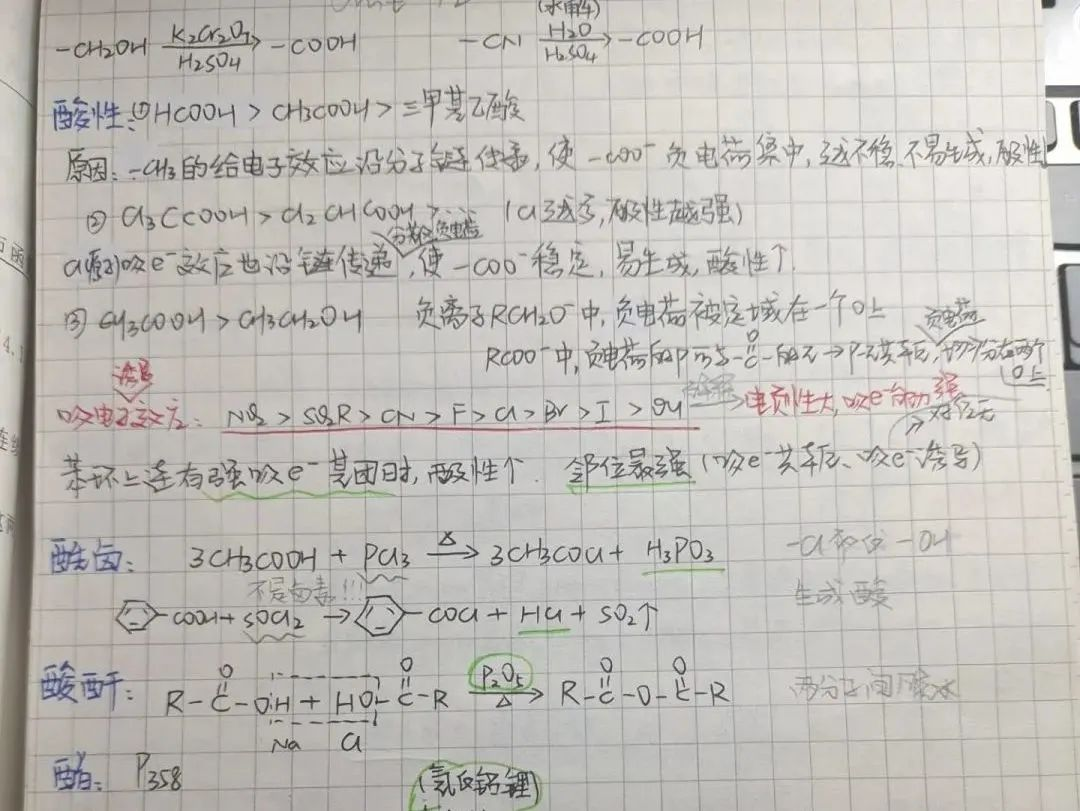 -CH2OH K2Cr2O7 / H2SO4 → -COOH   -CN (水解) H2O / H2SO4 → -COOH
酸性:① HCOOH > CH3COOH > 三甲基乙酸
原因: -CH3的给电子效应沿分子链传递, 使 -COO⁻ 负电荷集中, 越不稳, 不易生成, 酸性
② Cl3CCOOH > Cl2CHCOOH > (Cl越多, 酸性越强)
分散负电荷
Cl原子吸e⁻效应也沿链传递, 使 -COO⁻稳定, 易生成, 酸性↑
③ CH3COOH > CH3CH2OH 负离子RCH2O⁻中, 负电荷被定域在一个O上
负电荷
RCOO⁻中, 负电荷的p可与-C(=O)-的π→p-π共轭, 均分在两个O上
诱导
吸电子效应: NO2 > SO2R > CN > F > Cl > Br > I > OH 电负性大, 吸e⁻能力强
对位无
苯环上连有强吸e⁻基团时, 酸性↑ 邻位最强 (吸e⁻共轭、吸e⁻诱导)
酰卤: 3CH3COOH + PCl3 △→ 3CH3COCl + H3PO3 -Cl取代-OH
不是有毒!!! 生成酸
⌬-COOH + SOCl2 → ⌬-COCl + HCl + SO2↑
酸酐: R-C(=O)-OH + HO-C(=O)-R P2O5 / △ → R-C(=O)-O-C(=O)-R 两分子间脱水
Na Cl
酯: P358
(氢化铝锂)